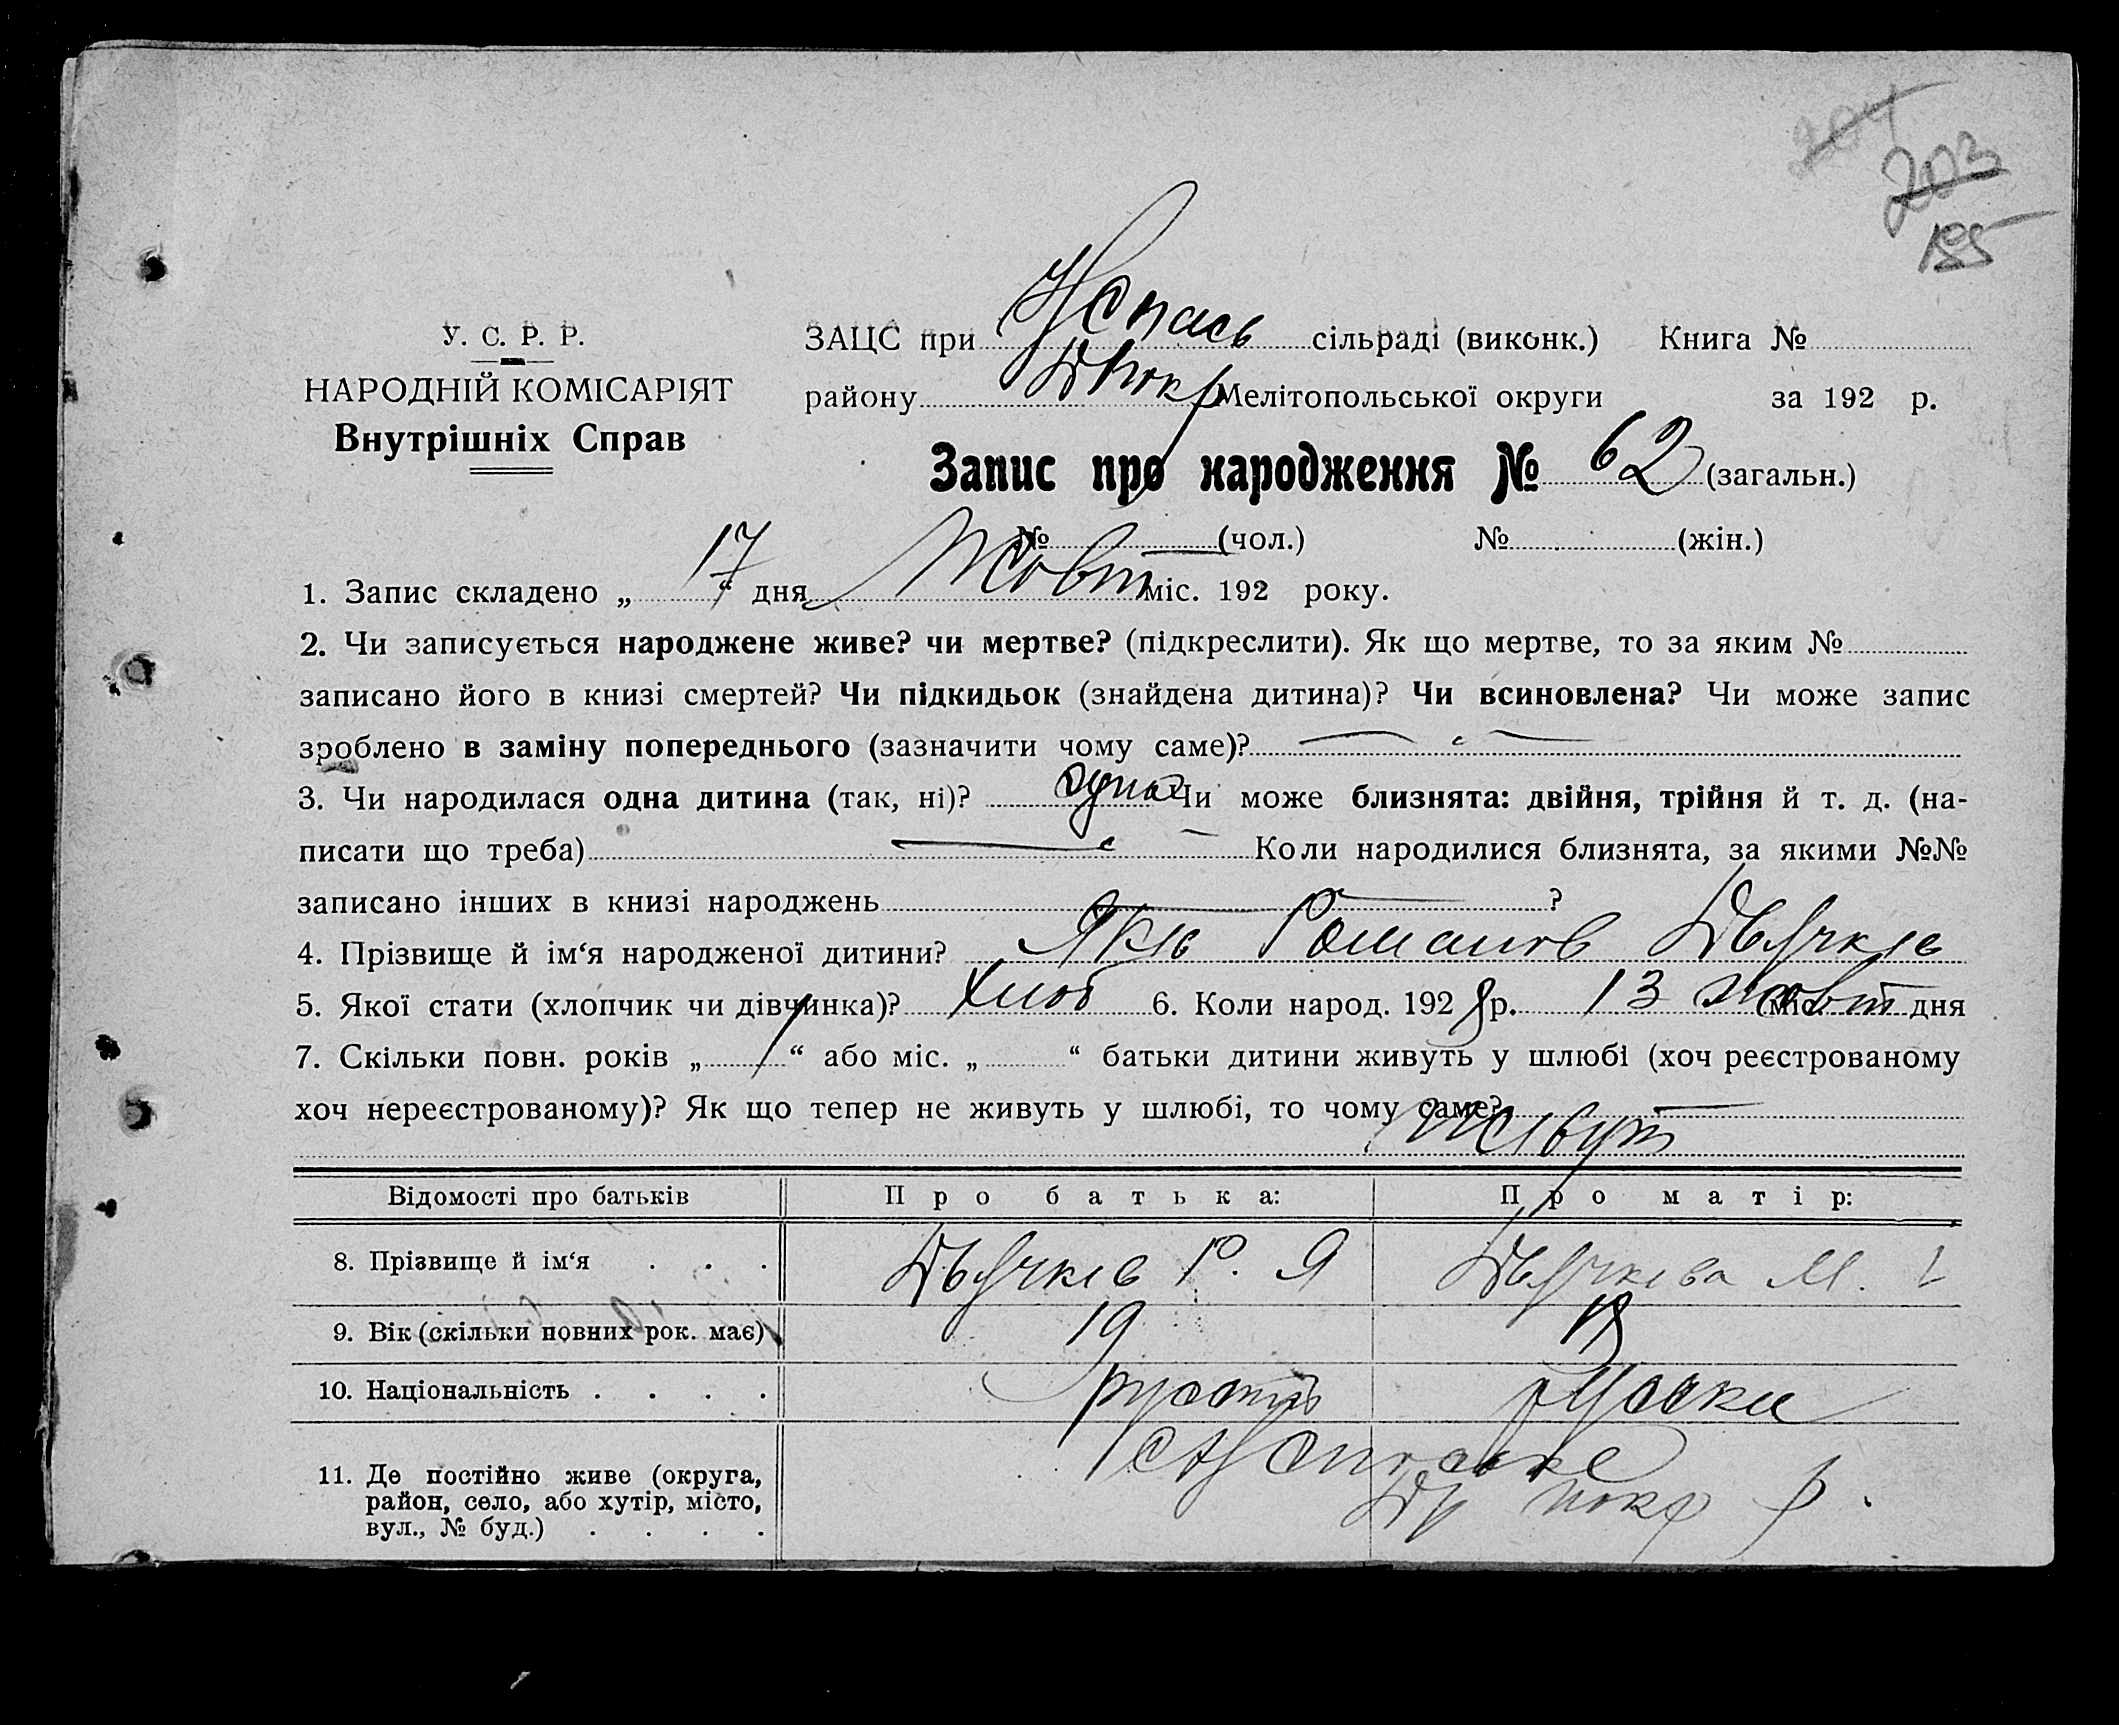 204
203
185
У. С. Р. Р.
НАРОДНІЙ КОМІСАРІЯТ
Внутрішніх Справ
ЗАЦС при сільраді (виконк.) Книга №
району Мелітопольської округи за 192 р.
Запис про народження № 62 (загальн.)
№ (чол.) № (жін.)
1. Запис складено „ 17 “ дня Жовт міс. 192 року.
2. Чи записується народжене живе? чи мертве? (підкреслити). Як що мертве, то за яким №
записано його в книзі смертей? Чи підкидьок (знайдена дитина)? Чи всиновлена? Чи може запис
зроблено в заміну попереднього (зазначити чому саме)?
3. Чи народилася одна дитина (так, ні)? одна Чи може близнята: двійня, трійня й т. д. (на-
писати що треба) Коли народилися близнята, за якими №№
записано інших в книзі народжень ?
4. Прізвище й ім‘я народженої дитини? Яків Романов Дьячків
5. Якої стати (хлопчик чи дівчинка)? хлоп 6. Коли народ. 1928 р. 13 жовт міс. дня
7. Скільки повн. років „ 1 “ або міс. „ “ батьки дитини живуть у шлюбі (хоч реєстрованому
хоч нереєстрованому)? Як що тепер не живуть у шлюбі, то чому саме?
живут
Відомості про батьків Про батька: Про матір:
8. Прізвище й ім‘я . . . Дьячків Р. Я Дьячківа М.
9. Вік (скільки повних рок. має) 19 18
10. Національність . . . . руски
11. Де постійно живе (округа,
район, село, або хутір, місто,
вул., № буд.) . . . .